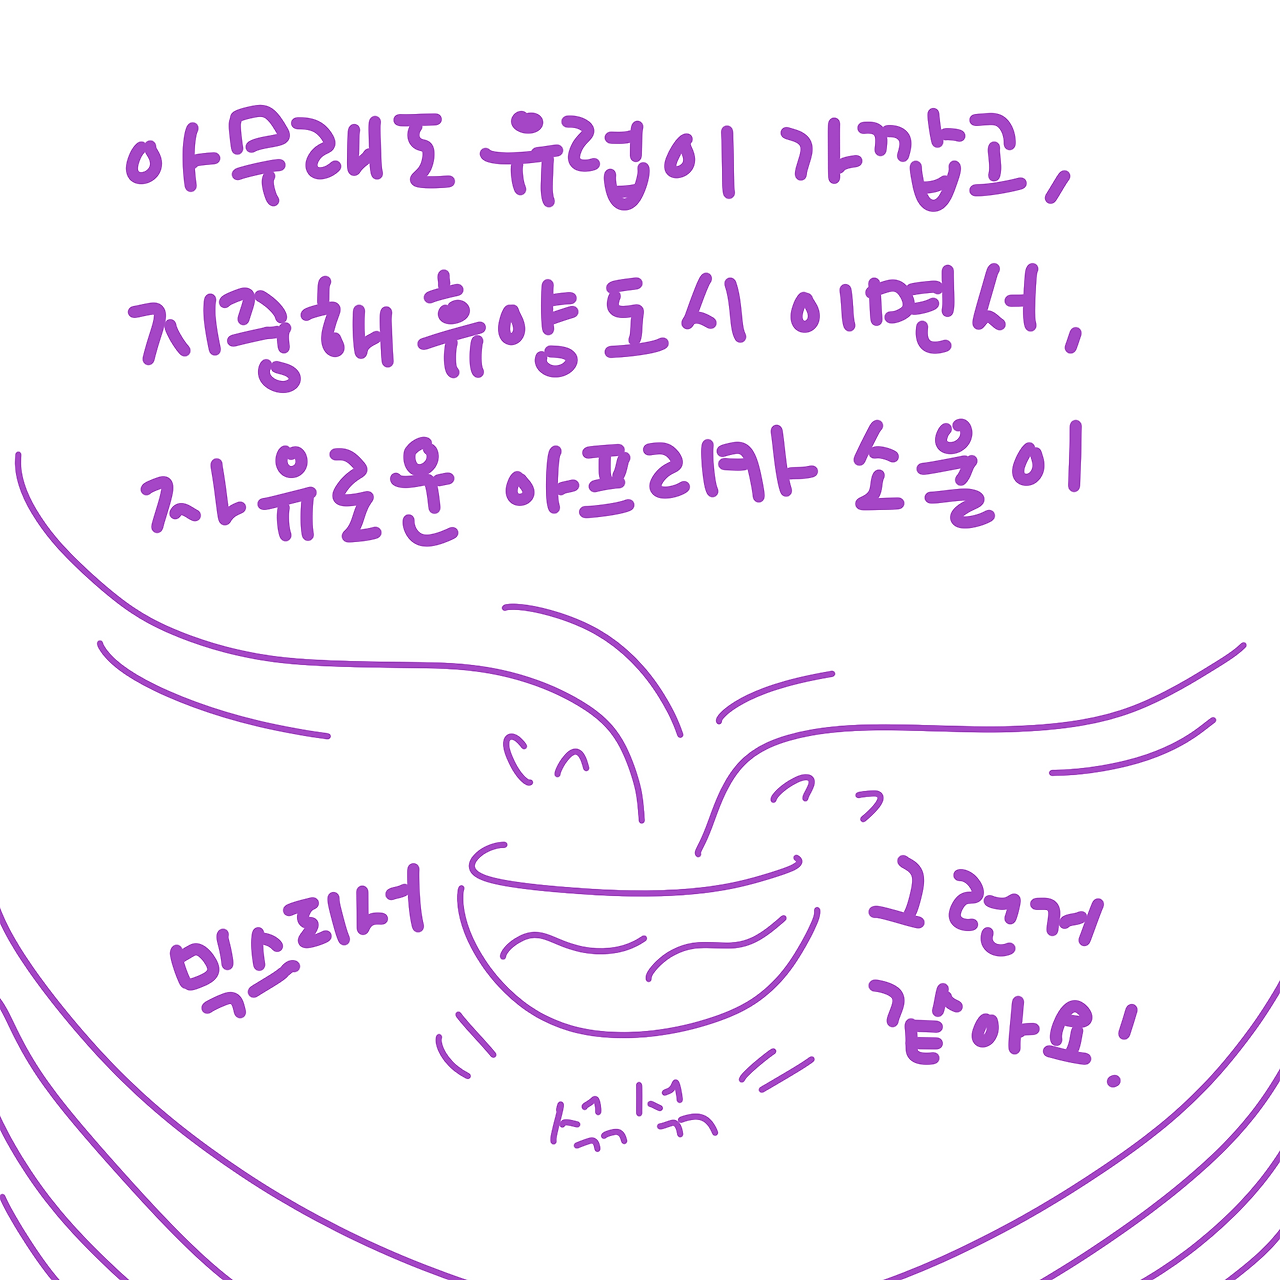 아무래도 유럽이 가깝고,
지중해 휴양도시 이면서,
자유로운 아프리카 소울이
믹스되서
그런게
같아요!
섞섞